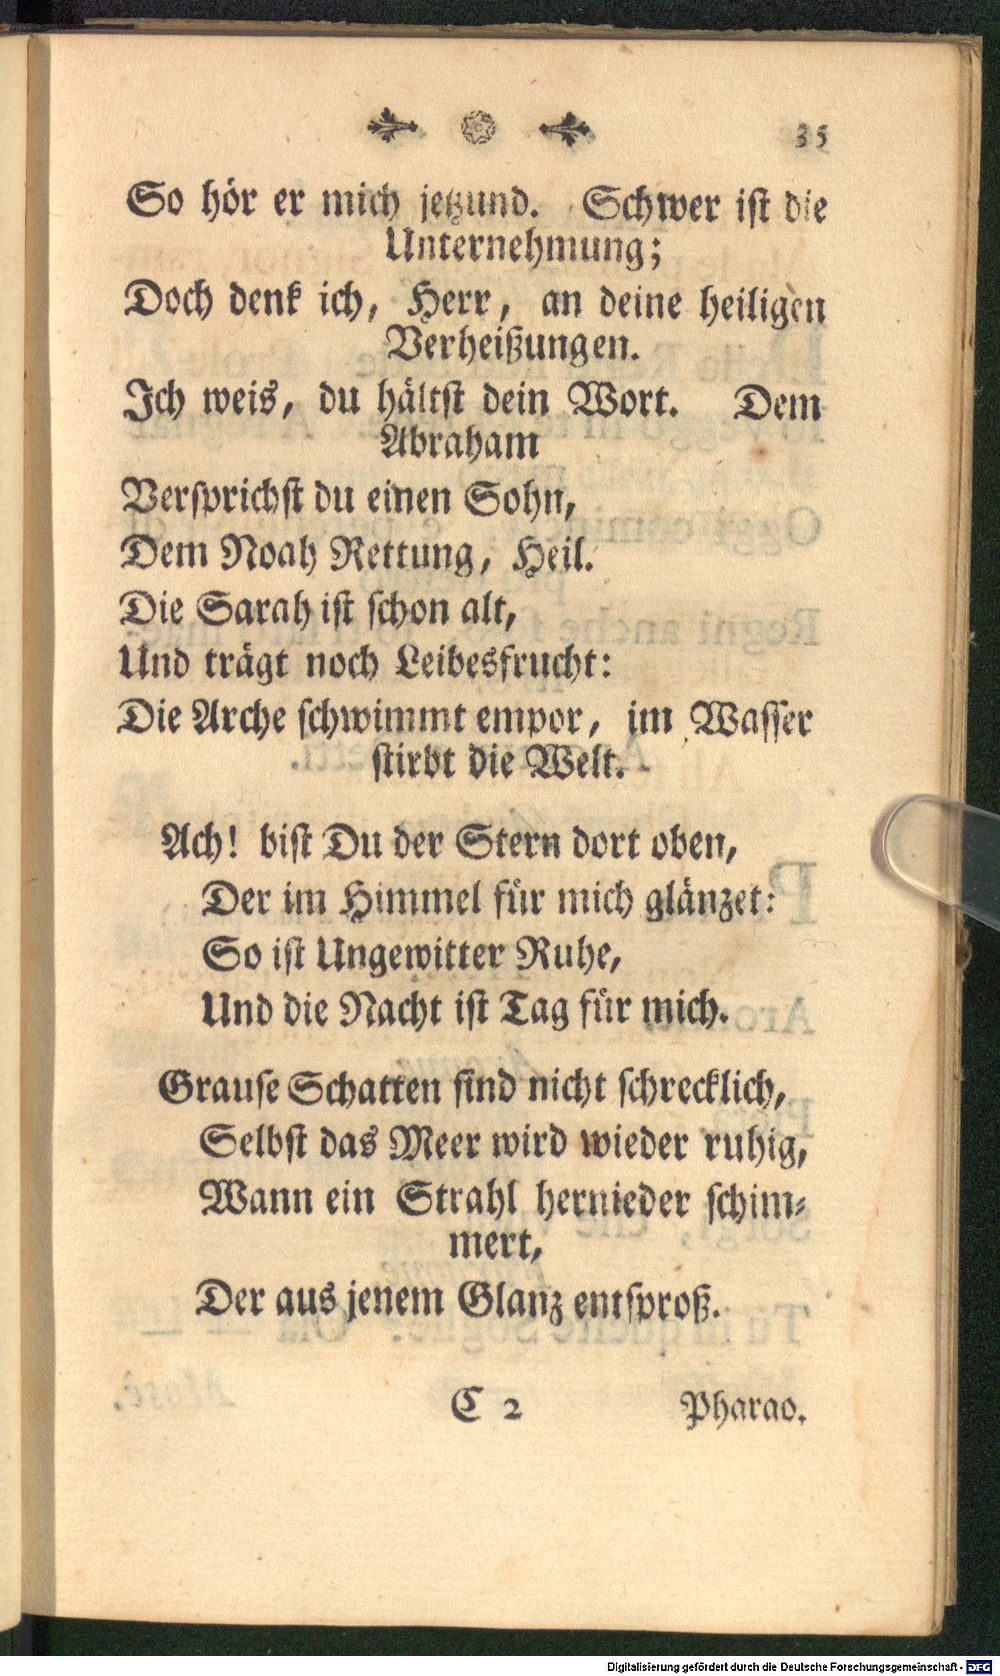 35
So hör er mich jetzund. Schwer ist die
Unternehmung;
Doch denk ich, Herr, an deine heiligen
Verheißungen.
Ich weis, du hältst dein Wort. Dem
Abraham
Versprichst du einen Sohn,
Dem Noah Rettung, Heil.
Die Sarah ist schon alt,
Und trägt noch Leibesfrucht:
Die Arche schwimmt empor, im Wasser
stirbt die Welt.
Ach! bist Du der Stern dort oben,
Der im Himmel für mich glänzet:
So ist Ungewitter Ruhe,
Und die Nacht ist Tag für mich.
Grause Schatten sind nicht schrecklich,
Selbst das Meer wird wieder ruhig,
Wann ein Strahl hernieder schim-
mert,
Der aus jenem Glanz entsproß.
C 2 Pharao.
Digitalisierung gefördert durch die Deutsche Forschungsgemeinschaft - DFG